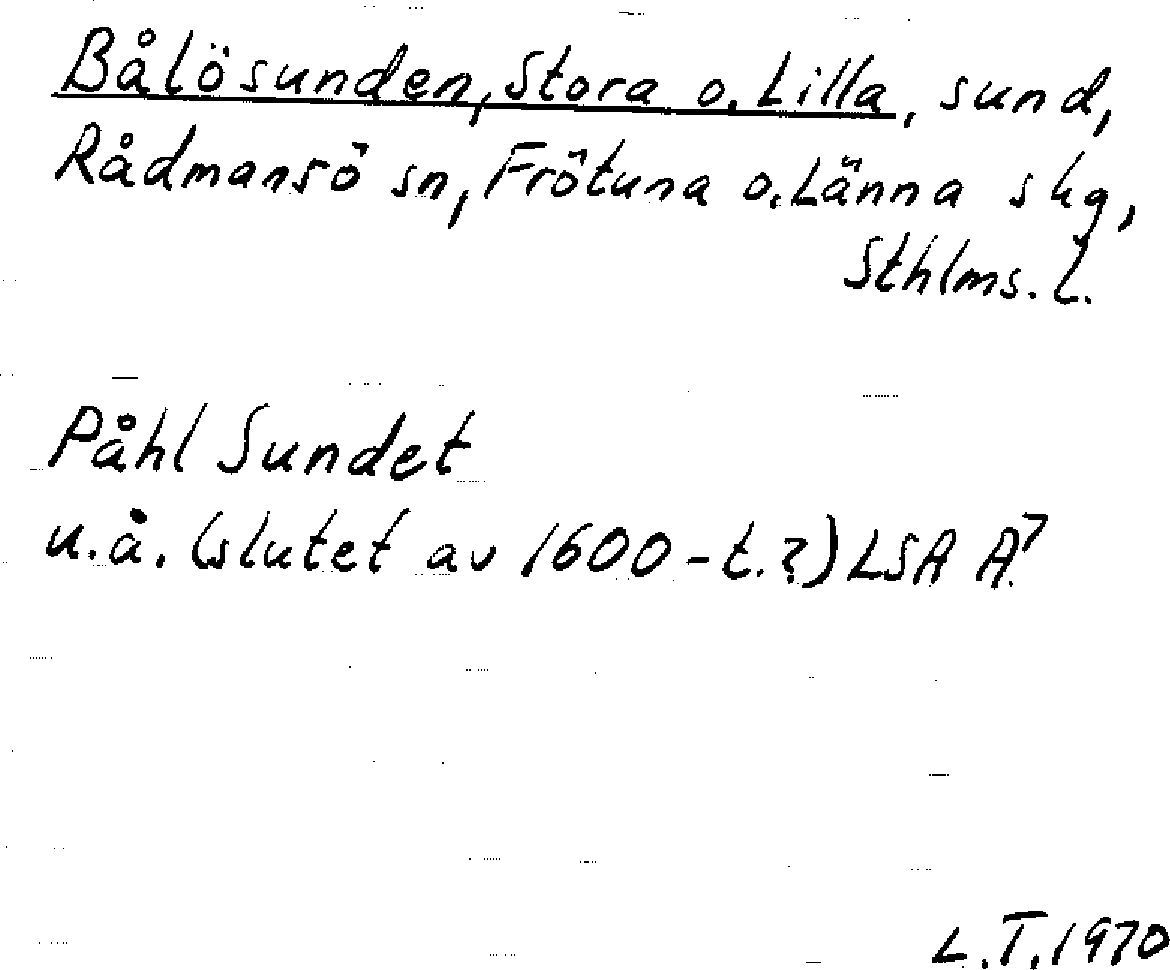 Bålösunden, Stora o. Lilla, sund,
Rådmansö sn, Frötuna o. Länna skg,
Sthlms. l.
Påhl Sundet
u.å. (slutet av 1600-t.?) LSA A⁷
L.T. 1970